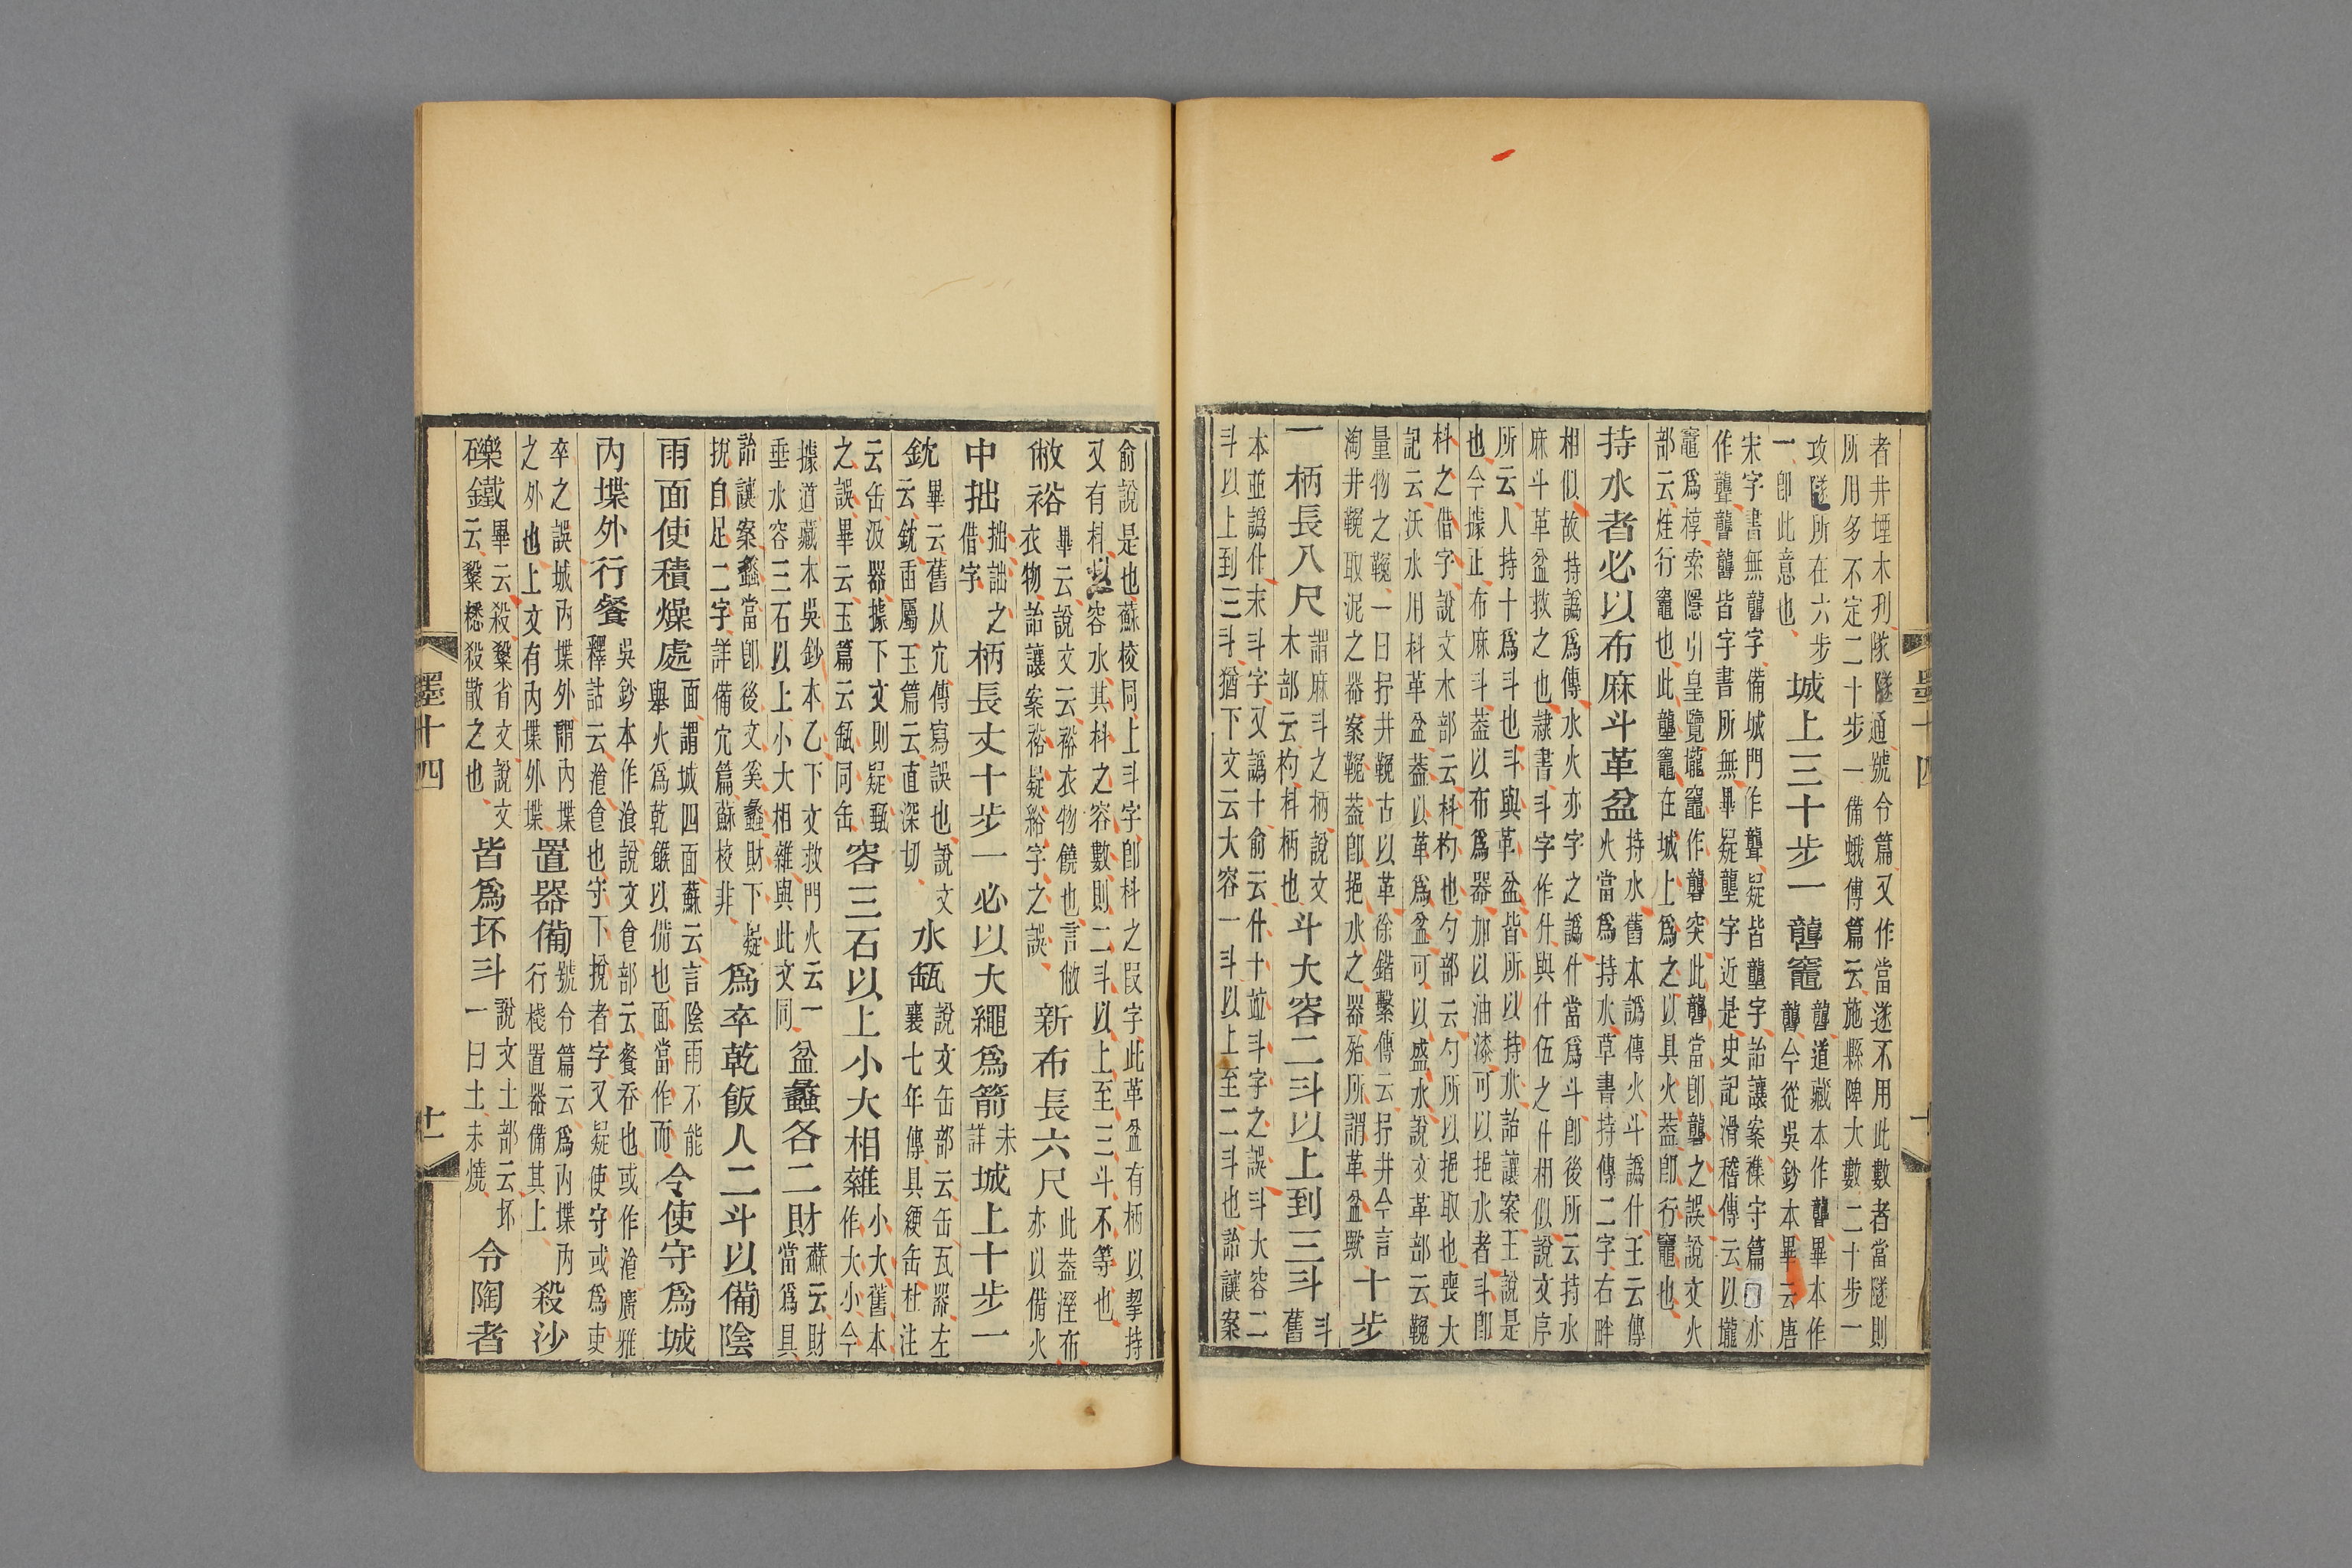 者井堙木刋隊隧通號令篇又作當遂不用此數者當隧則
所用多不定二十步一備蛾傅篇云施縣陴大數二十步一
攻隧所在六步
一卽此意也
城上三十步一礱竈
礱道藏本作礱畢本作
礱今從吳鈔本畢云唐
宋字書無礱字備城門作礱疑皆壟字詒讓案襍守篇亦
作礱礱礱皆字書所無畢疑壟字近是史記滑稽傳云以壠
竈爲椁索隱引皇覽壠竈作礱突此礱當卽礱之誤說文火
部云烓行竈也此壟竈在城上爲之以具火葢卽行竈也
持水者必以布麻斗革盆
持水舊本譌傳火斗譌什王云傳
火當爲持水草書持傳二字右畔
相似故持譌爲傳水火亦字之譌什當爲斗卽後所云持水
麻斗革盆救之也隷書斗字作什與什伍之什相似說文序
所云人持十爲斗也斗與革盆皆所以持水詒讓案王說是
也今據正布麻斗葢以布爲器加以油漆可以挹水者斗卽
枓之借字說文木部云枓杓也勺部云勺所以挹取也喪大
記云沃水用枓革盆葢以革爲盆可以盛水說文革部云鞔
量物之鞔一曰抒井鞔古以革徐鍇繫傳云抒井今言
淘井鞔取泥之器案鞔葢卽挹水之器殆所謂革盆歟
十步
一柄長八尺
謂麻斗之柄說文
木部云杓枓柄也
斗大容二斗以上到三斗
斗
舊
本並譌什末斗字又譌十俞云什十竝斗字之誤斗大容二
斗以上到三斗猶下文云大容一斗以上至二斗也詒讓案
俞說是也蘇校同上斗字卽枓之叚字此革盆有柄以挈持
又有枓以容水其枓之容數則二斗以上至三斗不等也
敝裕
畢云說文云裕衣物饒也言敝
衣物詒讓案裕疑綌字之誤
新布長六尺
此葢溼布
亦以備火
中拙
拙詘之
借字
柄長丈十步一必以大繩爲箭
未
詳
城上十步一
鈂
畢云舊从宂傳寫誤也說文
云鈂臿屬玉篇云直深切
水缻
說文缶部云缶瓦器左
襄七年傳具綆缶杜注
云缶汲器據下文則疑瓾
之誤畢云玉篇云缻同缶
容三石以上小大相雜
小大舊本
作大小今
據道藏本吳鈔本乙下文救門火云一
垂水容三石以上小大相雜與此文同
盆蠡各二財
蘇云財
當爲具
詒讓案蠡當卽後文奚蠡財下疑
挩自足二字詳備穴篇蘇校非
爲卒乾飯人二斗以備陰
雨面使積燥處
面謂城四面蘇云言陰雨不能
舉火爲乾餱以備也面當作而
令使守爲城
內堞外行餐
吳鈔本作湌說文倉部云餐吞也或作湌廣雅
釋詁云湌食也守下挩者字又疑使守或爲吏
卒之誤城內堞外謂內堞
之外也上文有內堞外堞
置器備
號令篇云爲內堞內
行棧置器備其上
殺沙
礫鐵
畢云殺䊝省文說文
云䊝𥻦殺散之也
皆爲坏斗
說文土部云坏
一曰土未燒
令陶者
墨十四
十一